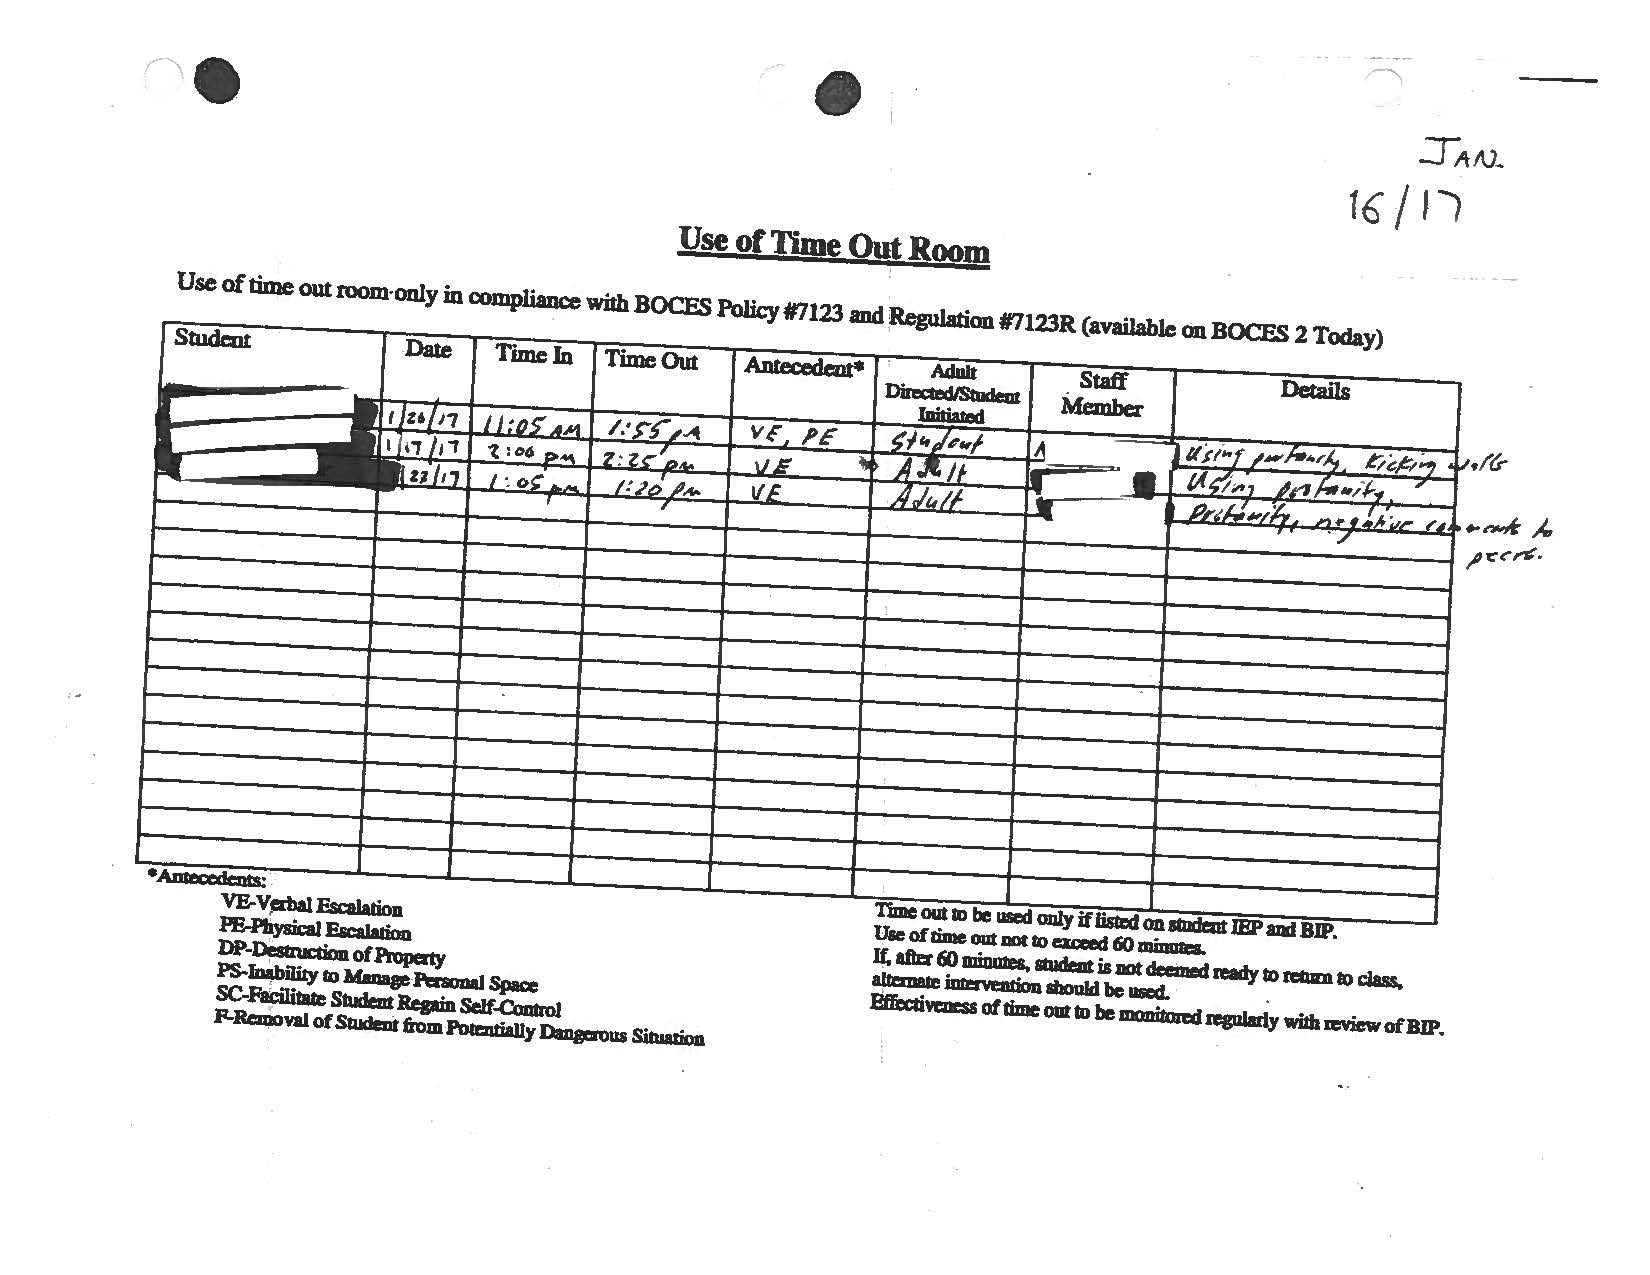 JAN.
16/17
Use of Time Out Room
Use of time out room only in compliance with BOCES Policy #7123 and Regulation #7123R (available on BOCES 2 Today)
Student Date Time In Time Out Antecedent* Adult Directed/Student Initiated Staff Member Details
1/26/17 11:05 AM 1:55 PM VE, PE Student Using profanity, kicking walls
1/17/17 2:00 pm 2:25 pm VE Adult Using profanity,
23/17 1:05 pm 1:20 pm VE Adult Profanity, negative comments to
peers.
*Antecedents:
VE-Verbal Escalation
PE-Physical Escalation
DP-Destruction of Property
PS-Inability to Manage Personal Space
SC-Facilitate Student Regain Self-Control
F-Removal of Student from Potentially Dangerous Situation
Time out to be used only if listed on student IEP and BIP.
Use of time out not to exceed 60 minutes.
If, after 60 minutes, student is not deemed ready to return to class,
alternate intervention should be used.
Effectiveness of time out to be monitored regularly with review of BIP.